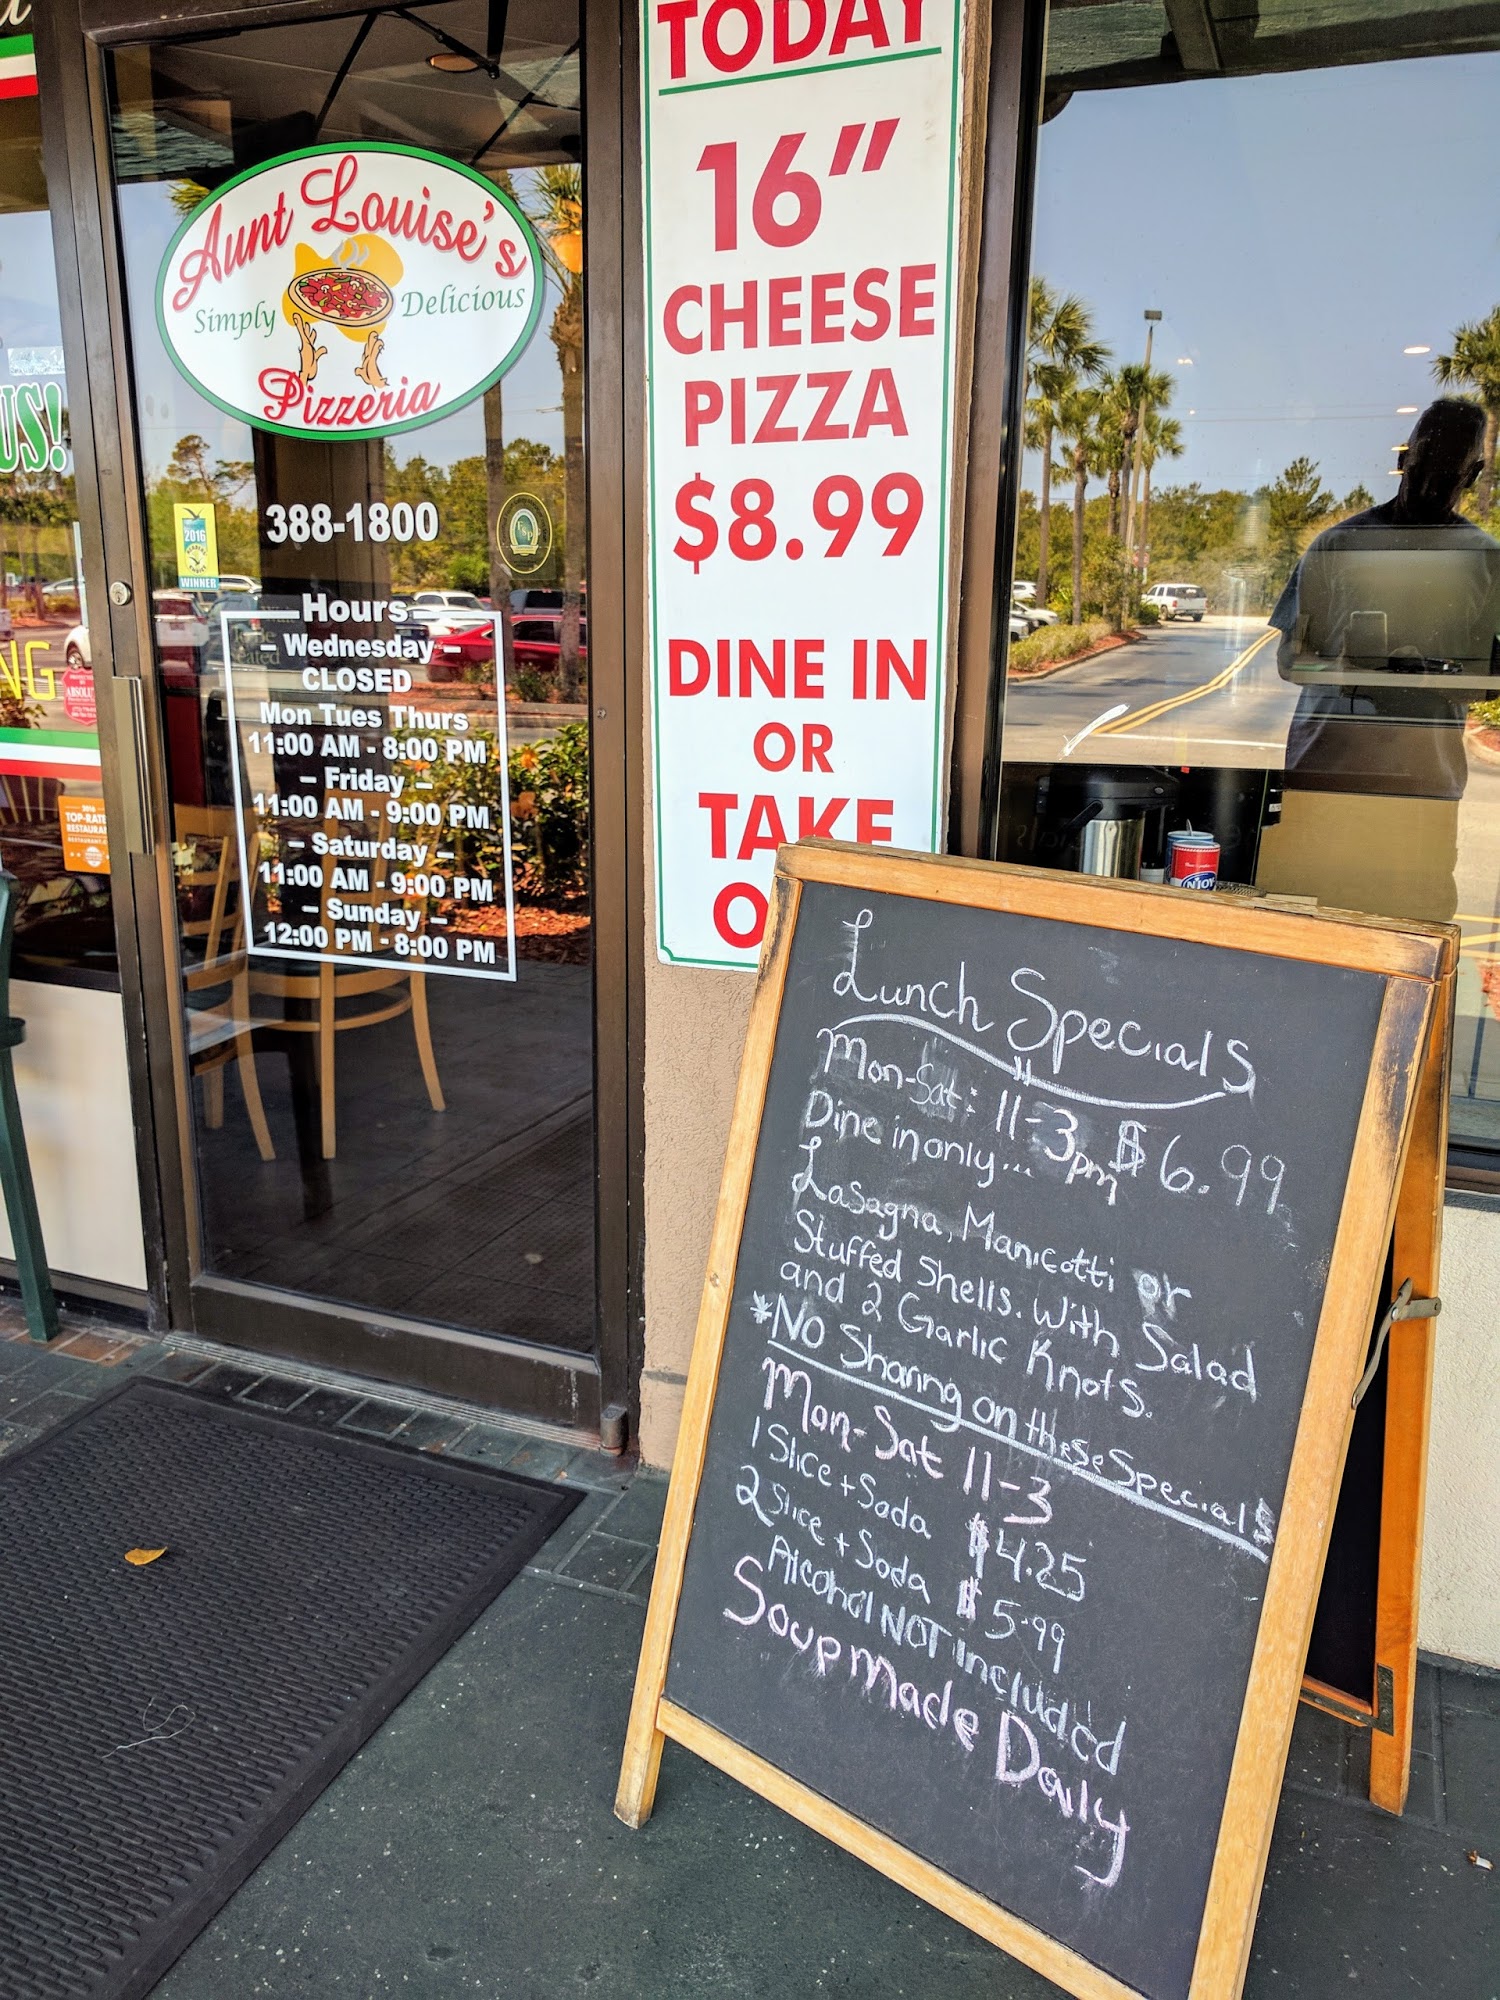 US!
NG
Aunt Louise's
Simply Delicious
Pizzeria
388-1800
2016
WINNER
Hours
– Wednesday –
CLOSED
Mon Tues Thurs
11:00 AM - 8:00 PM
– Friday –
11:00 AM - 9:00 PM
– Saturday –
11:00 AM - 9:00 PM
– Sunday –
12:00 PM - 8:00 PM
TOP-RATE
RESTAURAN
TODAY
16”
CHEESE
PIZZA
$8.99
DINE IN
OR
TAKE
O
Lunch Specials
Mon-Sat: 11-3pm $6.99
Dine in only...
Lasagna, Manicotti or
Stuffed Shells. With Salad
and 2 Garlic Knots.
*NO Sharing on these Specials
Mon-Sat 11-3
1 Slice + Soda $4.25
2 Slice + Soda $5.99
Alcohol NOT included
Soup made Daily